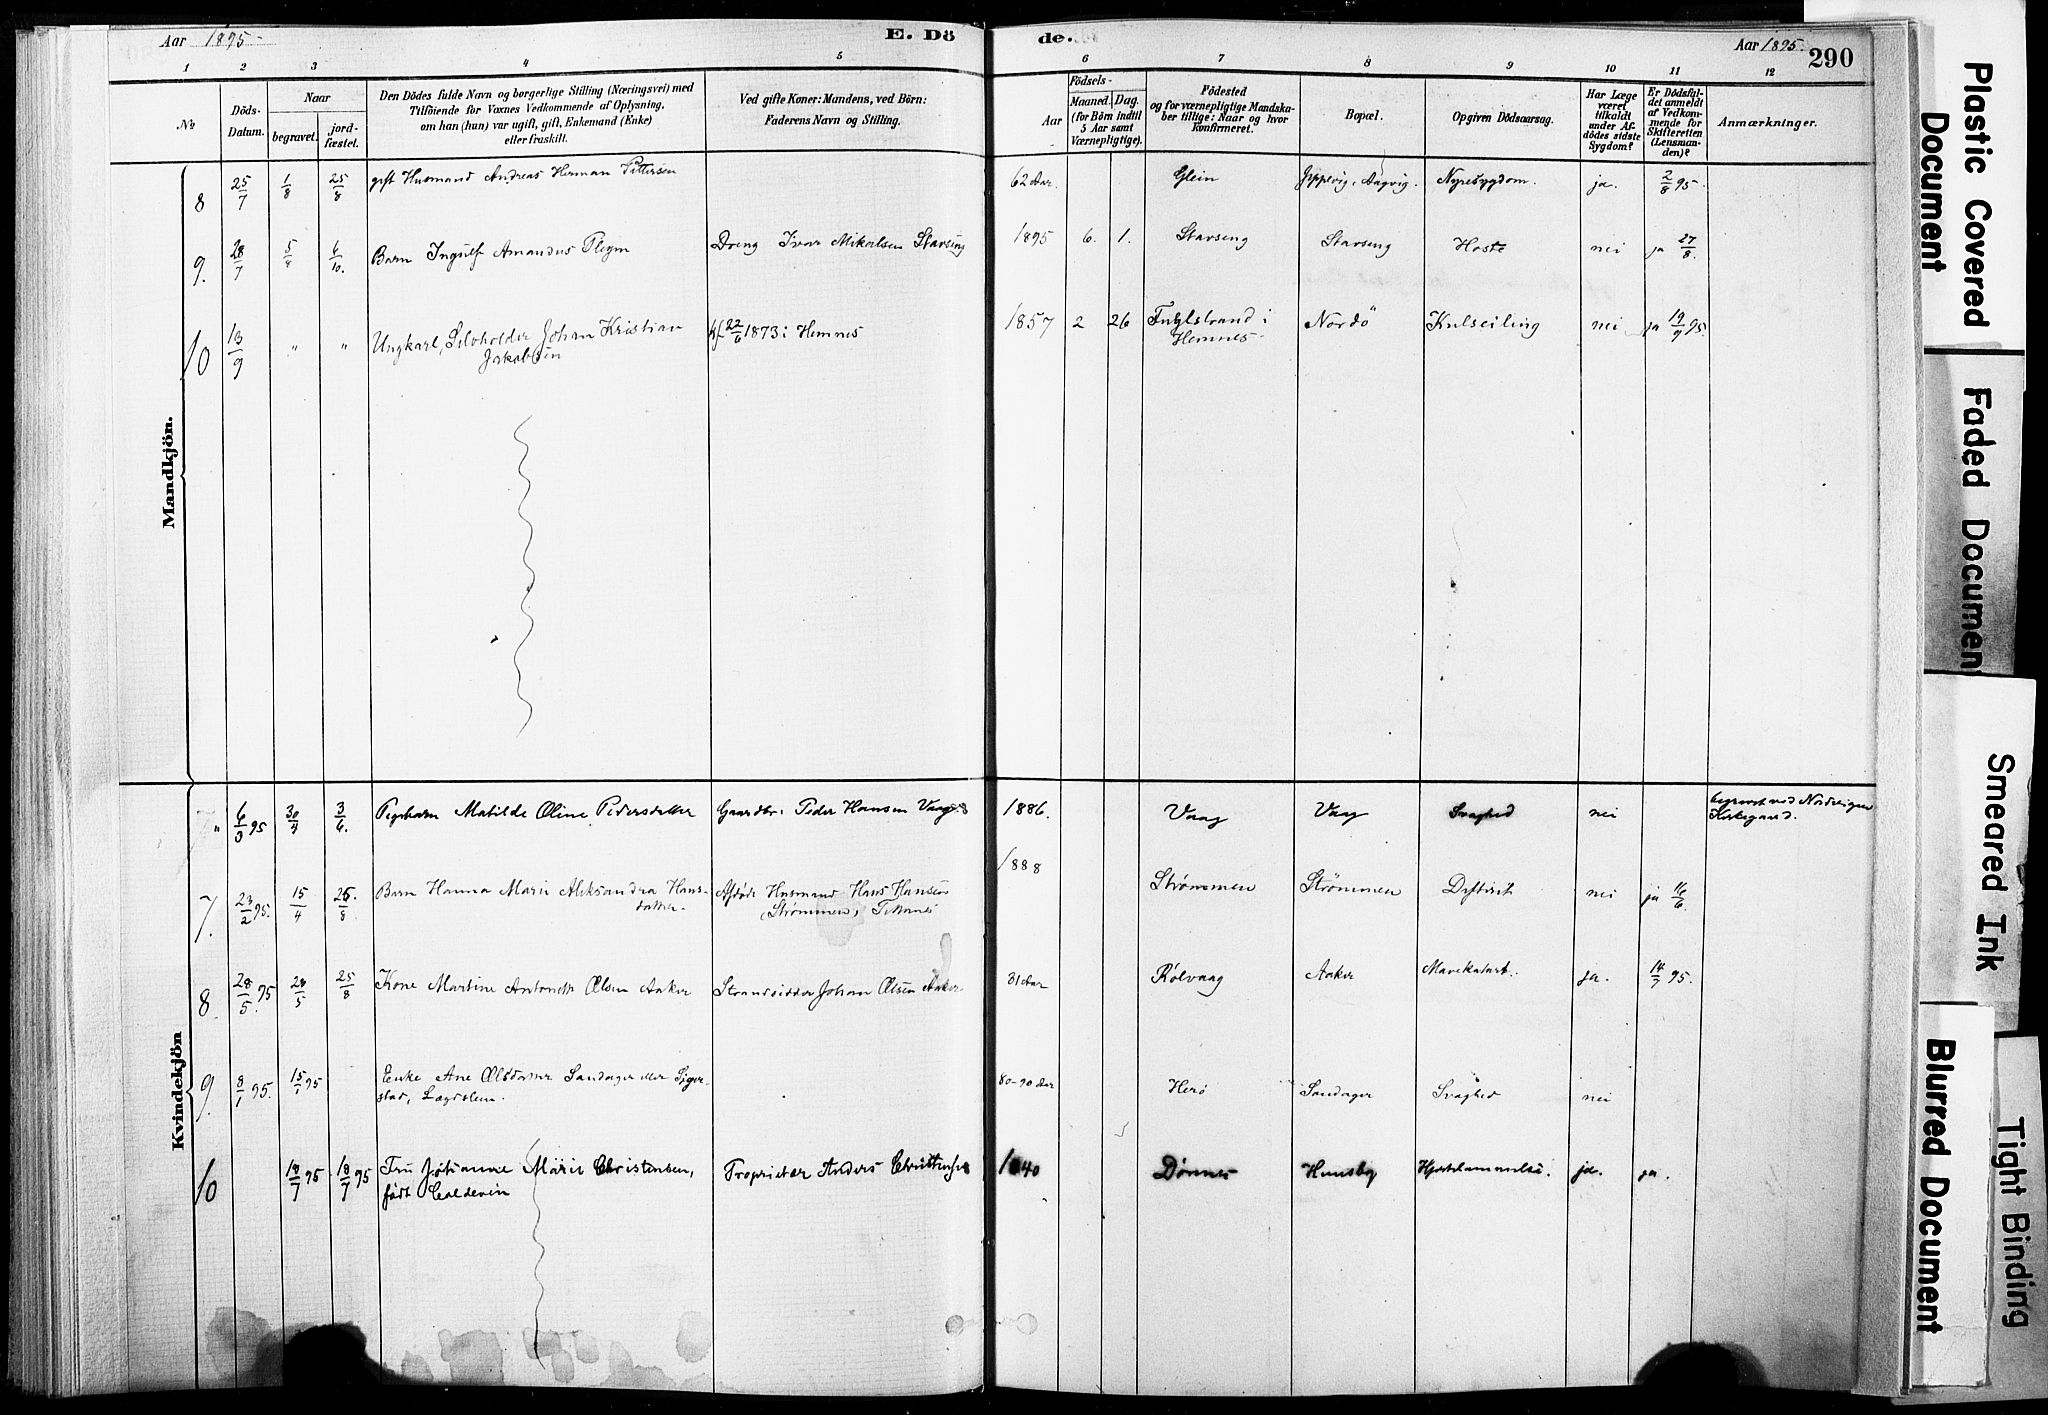 Aar 1895
E. Dö
de.
Aar 1895.
290
1 2 3 4 5 6 7 8 9 10 11 12
No
Döds-
Datum.
Naar
begravet.
jord-
fæstet.
Den Dödes fulde Navn og borgerlige Stilling (Næringsvei) med
Tilföiende for Voxnes Vedkommende af Oplysning,
om han (hun) var ugift, gift, Enkemand (Enke)
eller fraskilt.
Ved gifte Koner: Mandens, ved Börn:
Faderens Navn og Stilling.
Födsels-
Aar
Maaned.
Dag.
(for Börn indtil
5 Aar samt
Værnepligtige).
Födested
og for værnepligtige Mandska-
ber tillige: Naar og hvor
konfirmeret.
Bopæl.
Opgiven Dödsaarsag.
Har Læge
været
tilkaldt
under Af-
dödes sidste
Sygdom?
Er Dödsfal-
det anmeldt
af Vedkom-
mende for
Skifteretten
(Lensman-
den)?
Anmærkninger.
Mandkjön.
8 25/7 1/8 25/8 gift Husmand Andreas Herman Pettersen 62 Aar. Glein Nyresygdom. ja. 2/8 95.
9. 28/7 6/10. Barn Ingulf Amandus Dreng Ivar Mikalsen Stavseng 1895 6. 1. Stavseng Stavseng Hoste nei ja 27/8.
10 13/9 " " Ungkarl, Selvholder Johan Kristian 22/6 1873 i Hemnes 1857 2 26 i Nordö Kulseiling nei ja 19/9 95.
Jakobsen
Hemnes
Kvindekjön
" 95 30/4 3/6. Matilde Oline Pedersdatter Gaardbr: Peder Hansen Vaag 1886. Vaag Vaag Svaghed nei
begravet ved
Kirkegaard.
7. 23/2 95. 15/4 25/8 Barn Hanna Marie Aleksandra Hans-
datter.
Afdöde Husmand Hans Hansen
Strømmen,
1888 Strømmen Strömmen Difterit nei ja 16/6.
8 28/5. 95 28/5 25/8 Kone Martine Antonette Olsen Aaker Strandsidder Johan Olsen Aaker 31 Aar Rølvaag Aaker Mavekatarh. ja. 14/7 95.
9. 8/1 95. 15/1 95 Enke Ane Olsdatter Sandager eller
Lægdslem.
80-90 Aar Herö Sandager Svaghed nei
10 18/7 95 18/7 95 Fru Johanne Marie Christensen,
födt Coldevin
Proprietær Anders Christensen 1840 Dønnes ja. ja.
Plastic Covered
Document
Faded Document
Smeared Ink
Blurred Document
Tight Binding